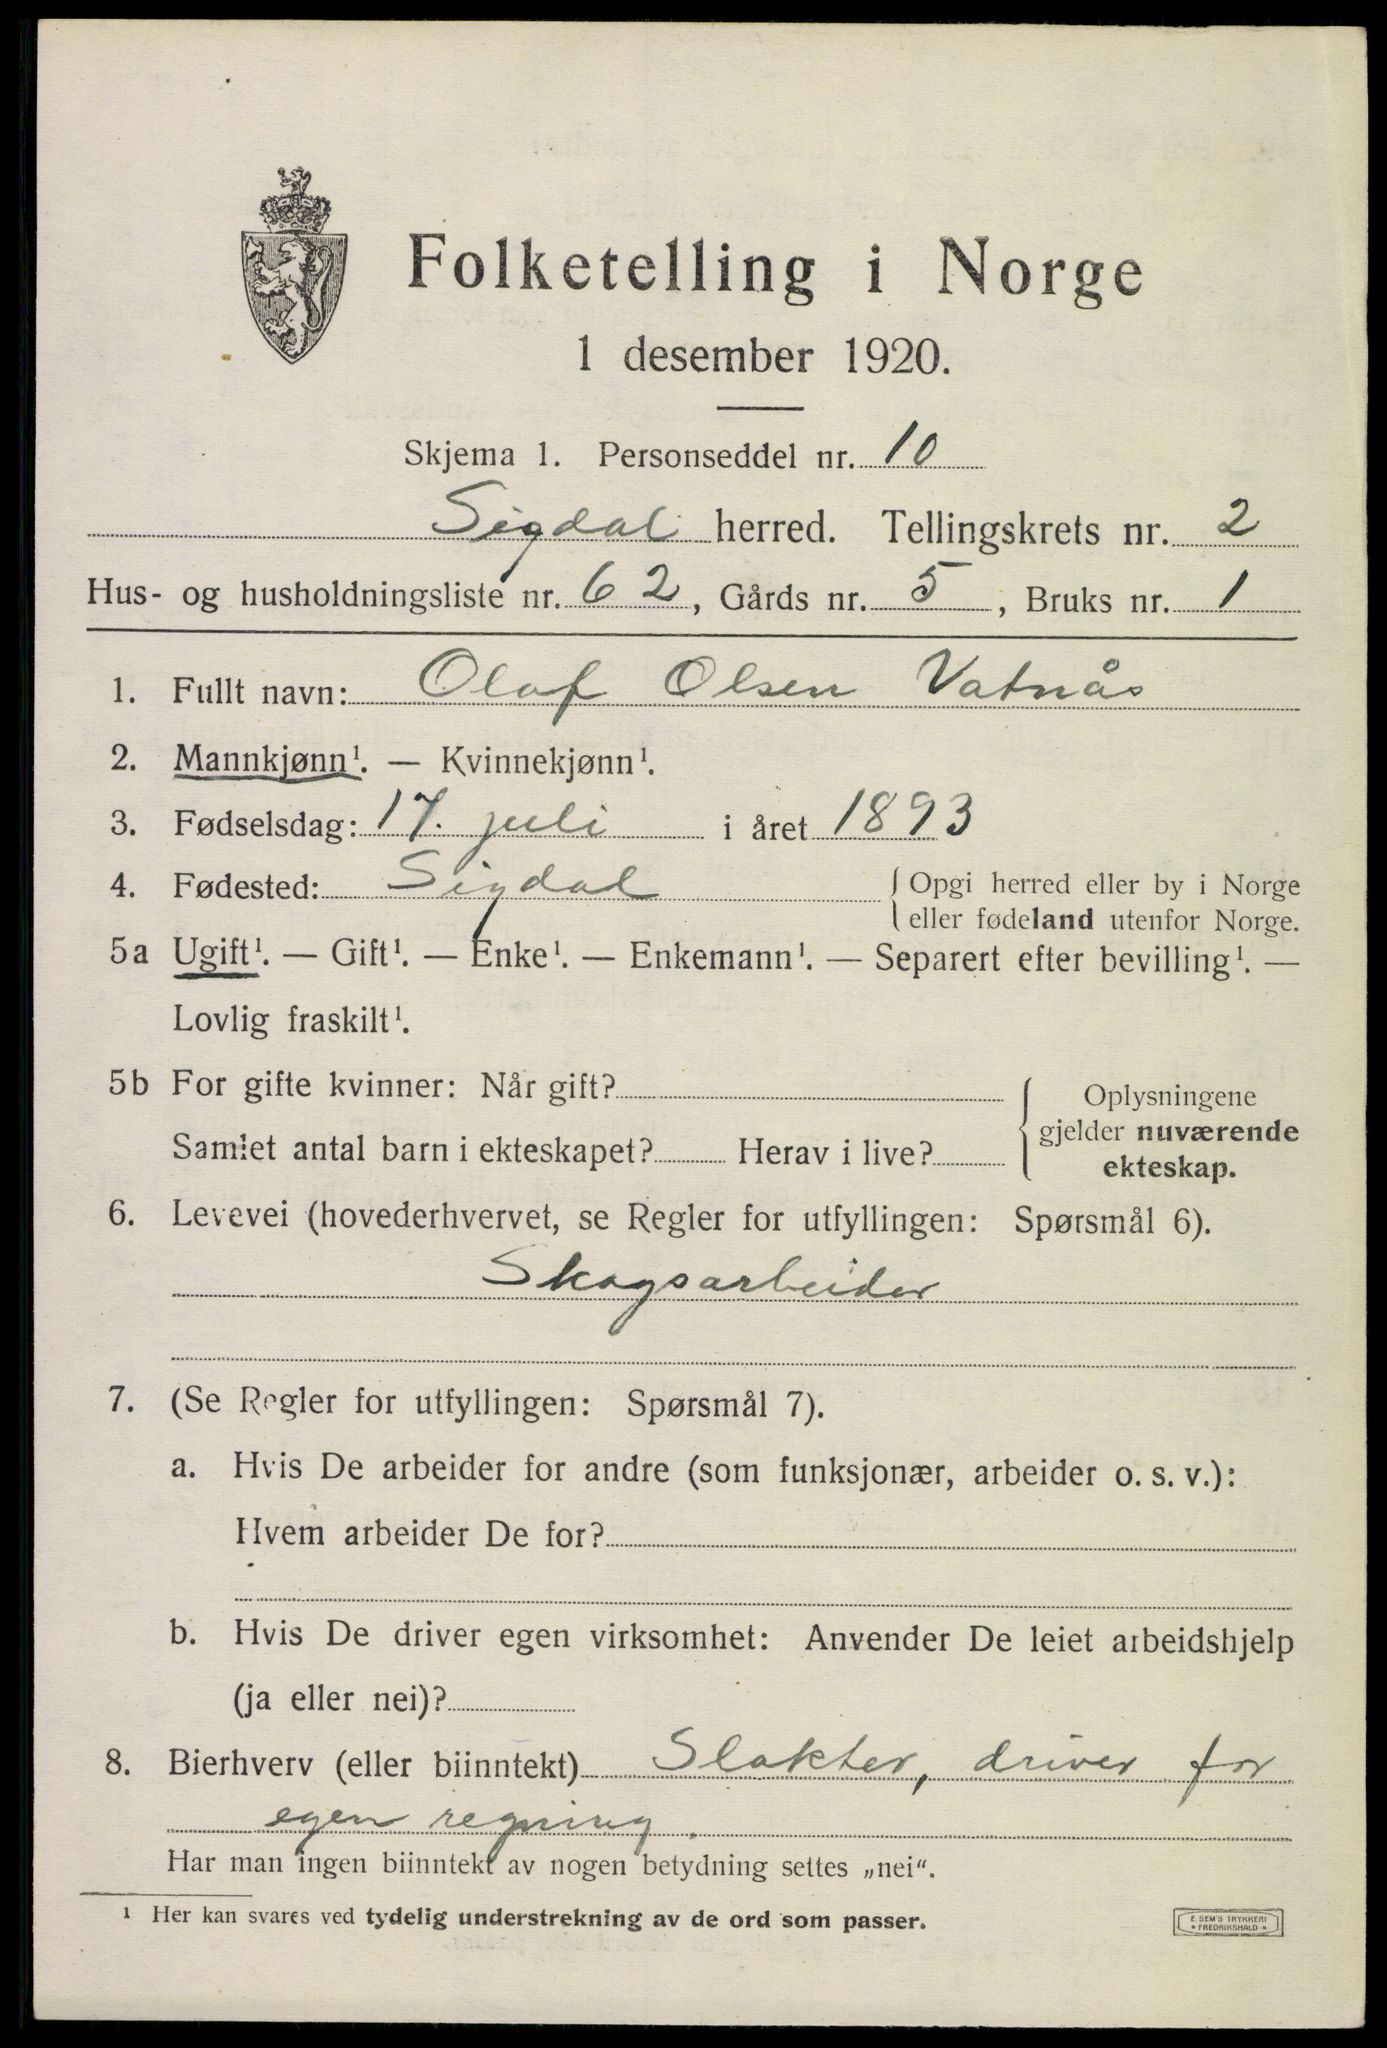 Folketelling i Norge
1 desember 1920.
Skjema 1. Personseddel nr. 10
Sigdal herred. Tellingskrets nr. 2
Hus- og husholdningsliste nr. 62, Gårds nr. 5, Bruks nr. 1
1. Fullt navn: Olaf Olsen Vatnås
2. Mannkjønn¹. — Kvinnekjønn¹.
3. Fødselsdag: 17. juli i året 1893
4. Fødested: Sigdal { Opgi herred eller by i Norge
eller fødeland utenfor Norge.
5a Ugift¹. — Gift¹. — Enke¹. — Enkemann¹. — Separert efter bevilling¹. —
Lovlig fraskilt¹.
5b For gifte kvinner: Når gift?
Samlet antal barn i ekteskapet? Herav i live?
Oplysningene
gjelder nuværende
ekteskap.
6. Levevei (hovederhvervet, se Regler for utfyllingen: Spørsmål 6).
Skogsarbeider
7. (Se Regler for utfyllingen: Spørsmål 7).
a. Hvis De arbeider for andre (som funksjonær, arbeider o. s. v.):
Hvem arbeider De for?
b. Hvis De driver egen virksomhet: Anvender De leiet arbeidshjelp
(ja eller nei)?
8. Bierhverv (eller biinntekt) Slakter, driver for
egen regning.
Har man ingen biinntekt av nogen betydning settes „nei“.
¹ Her kan svares ved tydelig understrekning av de ord som passer.
E. SEM'S TRYKKERI
* FREDRIKSHALD *